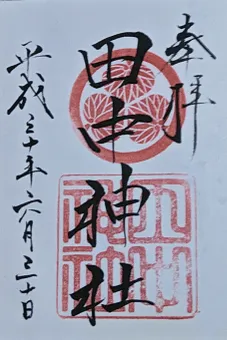 奉拝
田中神社
平成三十年六月三十日
田中神社